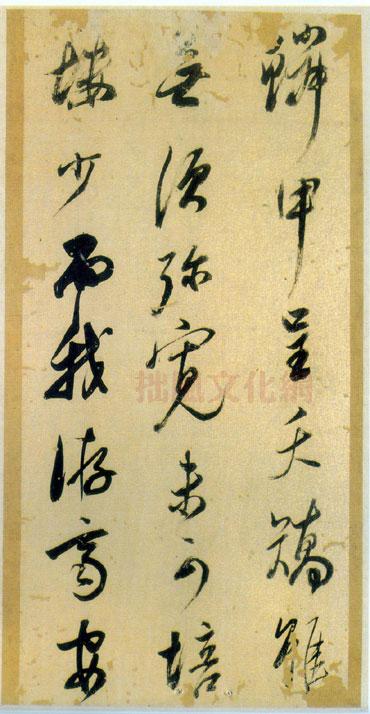 鱗甲呈夭矯雖
無須弥寬未可培
塿少而我游高安
拙風文化網